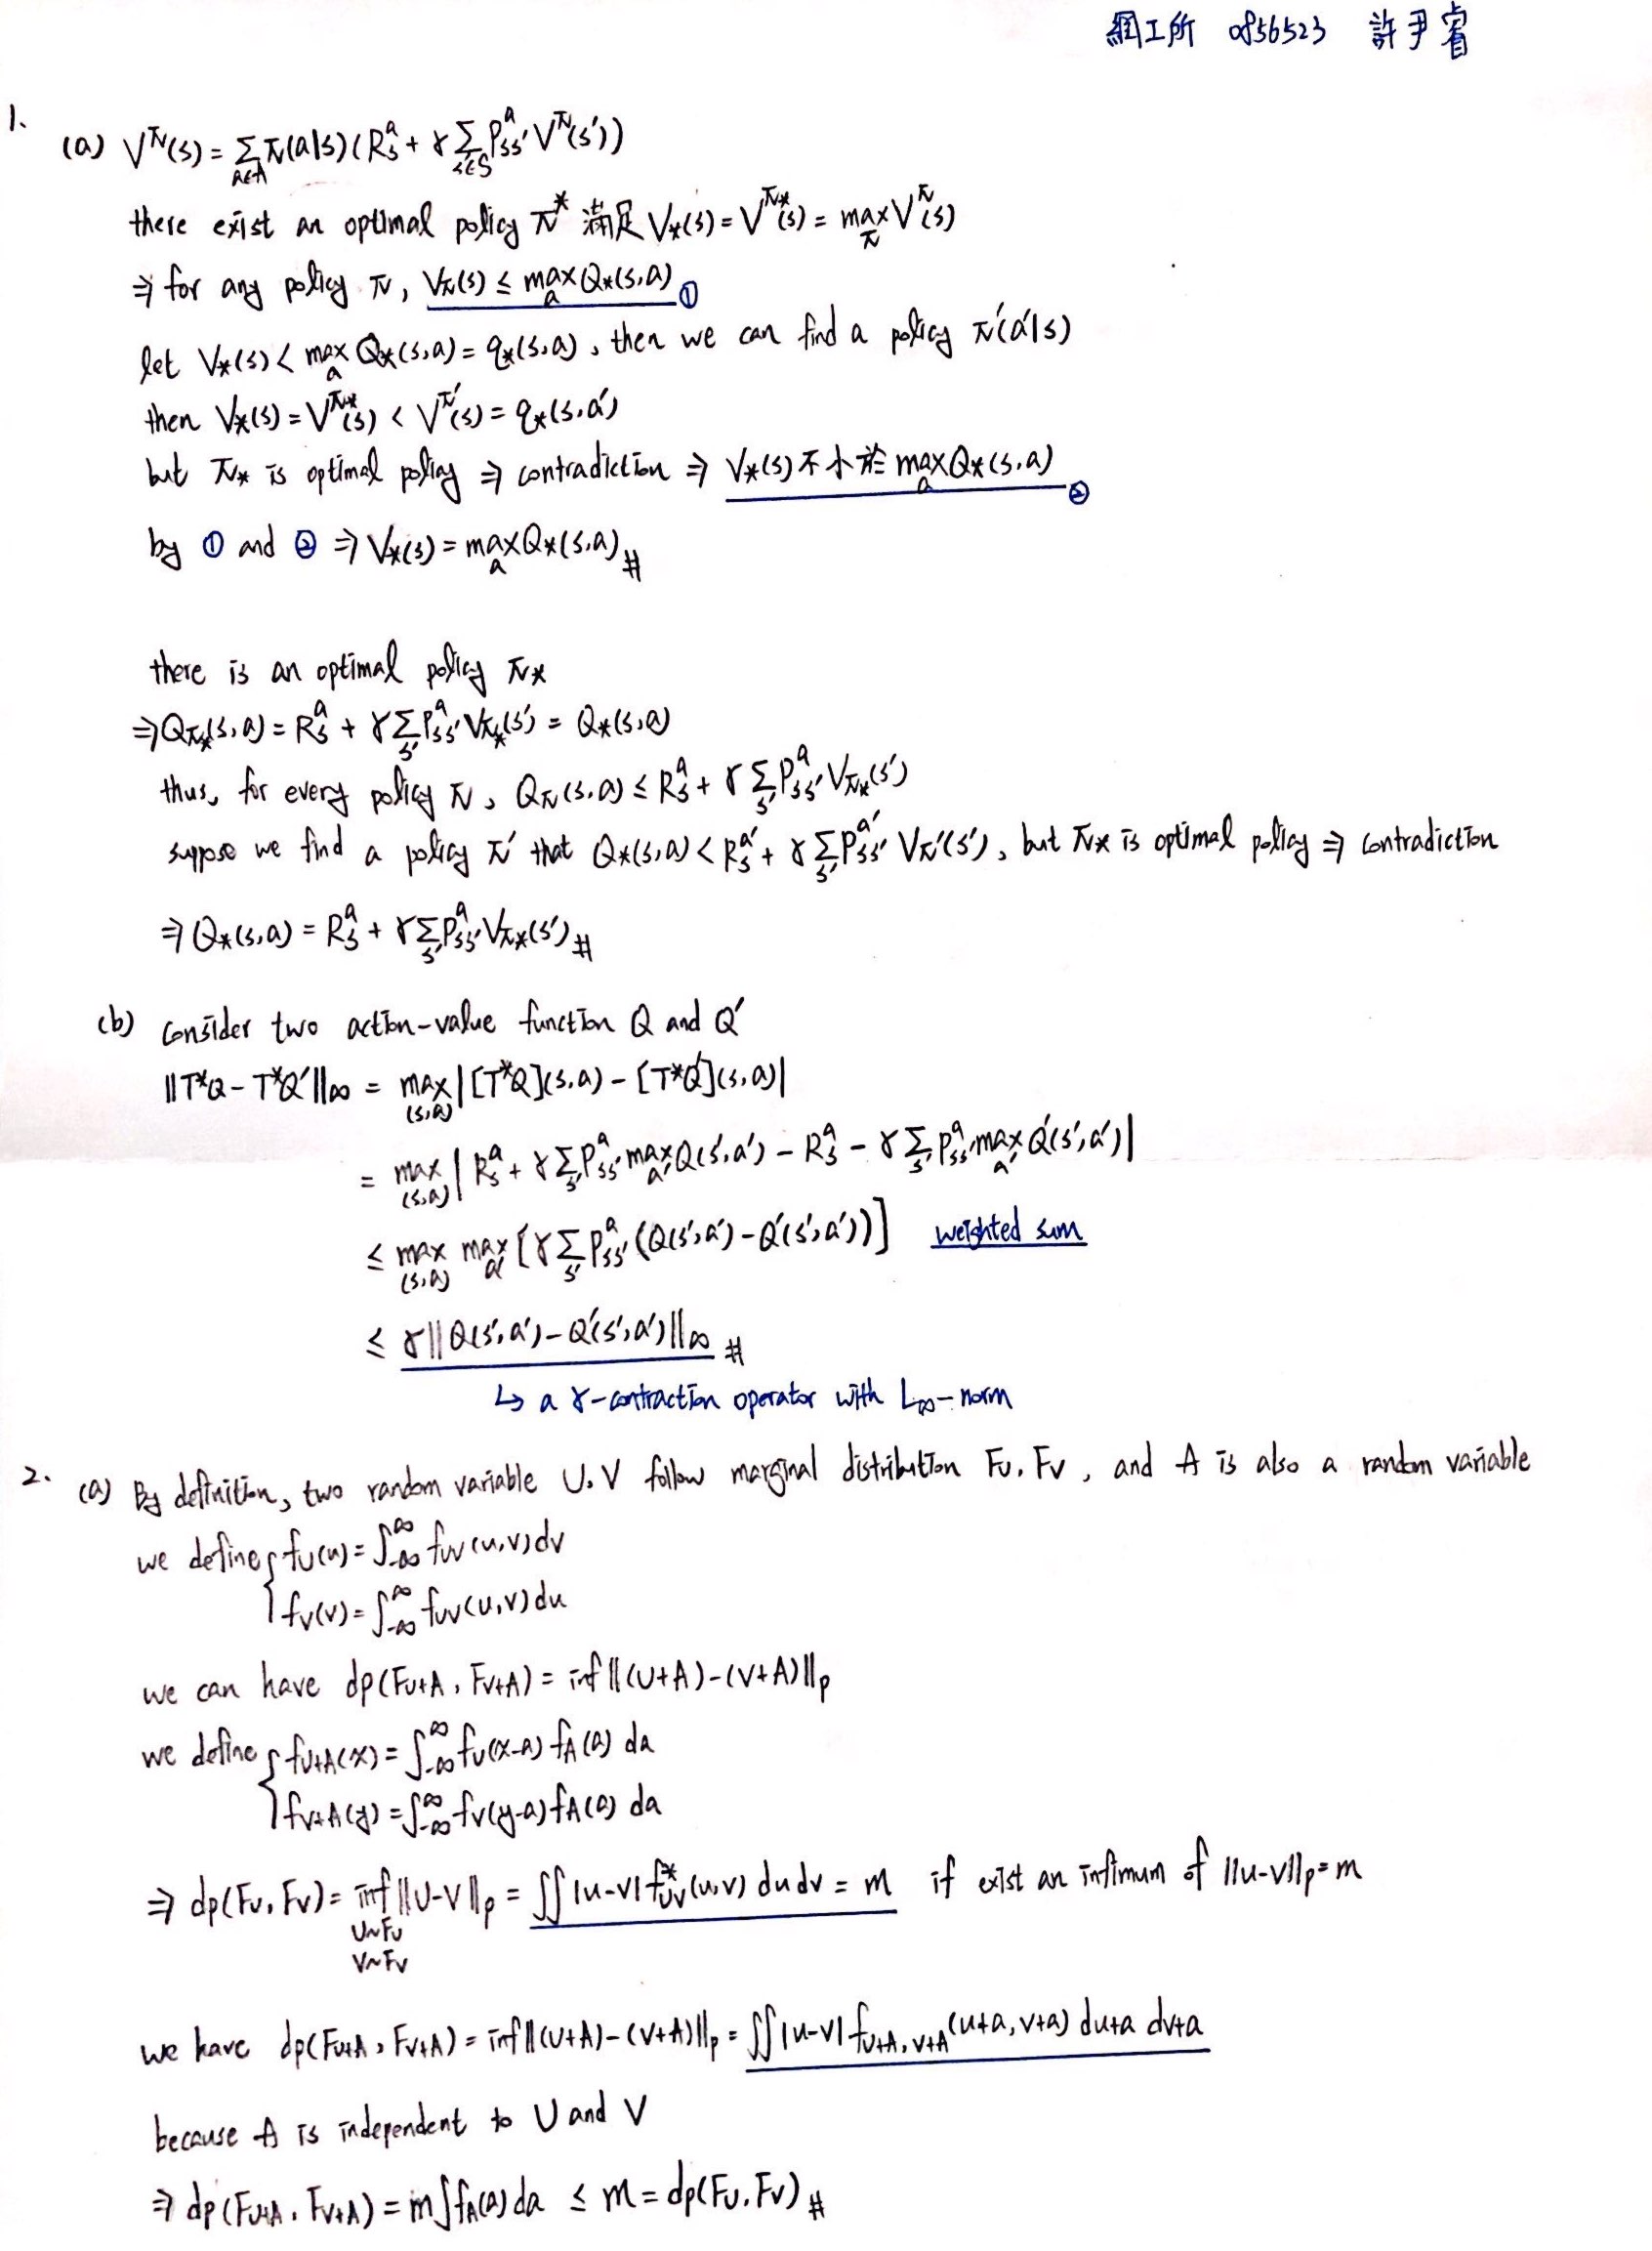 網工所 0856523 許尹睿
1.
(a) V^π(s) = Σ_{a∈A} π(a|s)(R_s^a + γ Σ_{s'∈S} P_{ss'}^a V^π(s'))
there exist an optimal policy π* 滿足 V_*(s) = V^{π*}(s) = max_π V^π(s)
⇒ for any policy π, V_π(s) ≤ max_a Q_*(s,a) ①
let V_*(s) < max_a Q_*(s,a) = q_*(s,a), then we can find a policy π'(a'|s)
then V_*(s) = V^{π*}(s) < V^{π'}(s) = q_*(s,a')
but π_* is optimal policy ⇒ contradiction ⇒ V_*(s) 不小於 max_a Q_*(s,a) ②
by ① and ② ⇒ V_*(s) = max_a Q_*(s,a) #
there is an optimal policy π_*
⇒ Q_{π*}(s,a) = R_s^a + γ Σ_{s'} P_{ss'}^a V_{π*}(s') = Q_*(s,a)
thus, for every policy π, Q_π(s,a) ≤ R_s^a + γ Σ_{s'} P_{ss'}^a V_{π*}(s')
suppose we find a policy π' that Q_*(s,a) < R_s^{a'} + γ Σ_{s'} P_{ss'}^{a'} V_{π'}(s'), but π_* is optimal policy ⇒ contradiction
⇒ Q_*(s,a) = R_s^a + γ Σ_{s'} P_{ss'}^a V_{π*}(s') #
(b) consider two action-value function Q and Q'
||T*Q - T*Q'||_∞ = max_{(s,a)} |[T*Q](s,a) - [T*Q'](s,a)|
= max_{(s,a)} | R_s^a + γ Σ_{s'} P_{ss'}^a max_{a'} Q(s',a') - R_s^a - γ Σ_{s'} P_{ss'}^a max_{a'} Q'(s',a')|
≤ max_{(s,a)} max_{a'} [γ Σ_{s'} P_{ss'}^a (Q(s',a') - Q'(s',a'))] weighted sum
≤ γ||Q(s',a') - Q'(s',a')||_∞ #
↳ a γ-contraction operator with L_∞-norm
2. (a) By definition, two random variable U.V follow marginal distribution F_U. F_V, and A is also a random variable
we define { f_U(u) = ∫_{-∞}^{∞} f_{UV}(u,v)dv
f_V(v) = ∫_{-∞}^{∞} f_{UV}(u,v)du
we can have dp(F_{U+A}, F_{V+A}) = inf||(U+A)-(V+A)||_p
we define { f_{U+A}(x) = ∫_{-∞}^{∞} f_U(x-a) f_A(a) da
f_{V+A}(y) = ∫_{-∞}^{∞} f_V(y-a) f_A(a) da
⇒ dp(F_U, F_V) = inf_{U~F_U V~F_V} ||U-V||_p = ∬|u-v| f*_{UV}(u,v) du dv = m if exist an infimum of ||u-v||_p = m
we have dp(F_{U+A}, F_{V+A}) = inf||(U+A)-(V+A)||_p = ∬|u-v| f_{U+A,V+A}(u+a, v+a) du+a dv+a
because A is independent to U and V
⇒ dp(F_{U+A}, F_{V+A}) = m∫f_A(a)da ≤ m = dp(F_U, F_V) #